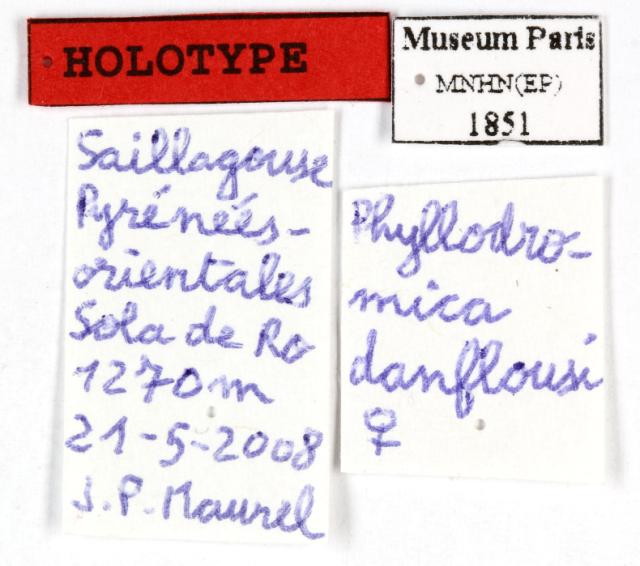 HOLOTYPE
Museum Paris
MNHN(EP)
1851
Saillagouse
Pyrénéés-
orientales
Sola de Ro
1270m
21-5-2008
J.P. Maurel
Phyllodro-
mica
danflousi
♀